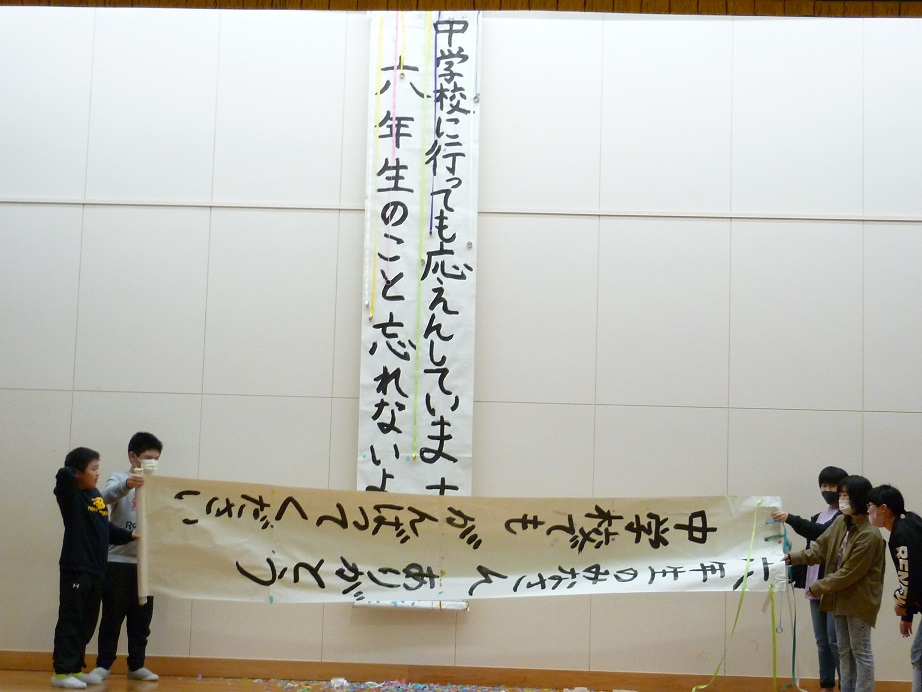 中学校に行っても応えんしています
六年生のこと忘れないよ
六年生のみなさん ありがとう
中学校でも がんばってください